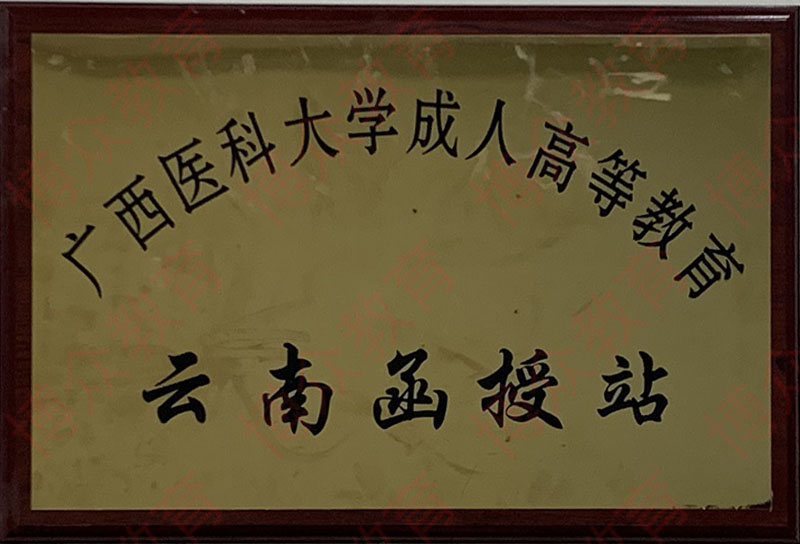 广西医科大学成人高等教育
云南函授站
博众教育